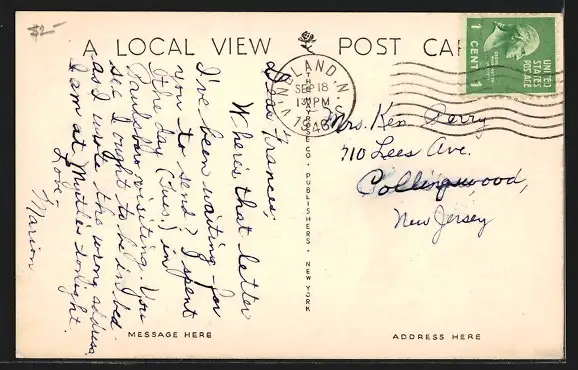 $2-
A LOCAL VIEW
POST CAR
VINELAND, N.J.
SEP 18
1 PM
1946
UNITED
STATES
POSTAGE
1 CENT 1
Dear Frances,
Where's that letter
I've been waiting for
you to send? I spent
the day (Tues.) in
Paulsboro visiting. You
see I ought to be in bed
as I wrote the wrong address.
I am at Myrtle's tonight.
Love
Marion
Mrs. Ken Perry
710 Lees Ave.
Collingswood,
New Jersey
PUBLISHERS. NEW YORK
MESSAGE HERE
ADDRESS HERE